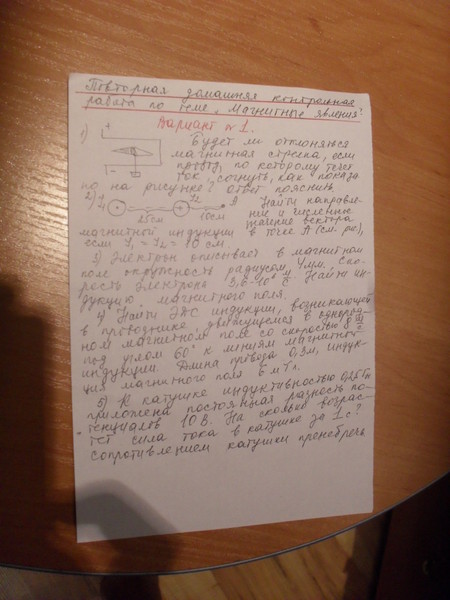 Повторная домашняя контрольная
работа по теме „Магнитные явления"
Вариант №1.
1) + Будет ли отклоняться
магнитная стрелка, если
провод, по которому течёт
ток, согнуть, как показа
- но на рисунке? ответ пояснить.
2) J1 J2 A Найти направле-
25см 10см ние и численное
значение вектора
магнитной индукции в точке А (см. рис),
если J1 = J2 =
3) Электрон описывает в магнитном
поле окружность радиусом 4мм. Ско-
рость электрона 3,6·10⁶ м/с. Найти ин-
дукцию магнитного поля.
4) Найти ЭДС индукции, возникающей
в проводнике, движущемся в однород-
ном магнитном поле со скоростью 8 м/с
под углом 60° к линиям магнитной
индукции. Длина провода 0,3м, индук-
ция магнитного поля 6 мТл.
5) К катушке индуктивностью 0,25Гн
приложена постоянная разность по-
тенциалов 10В. На сколько возрас-
тёт сила тока в катушке за 1с?
Сопротивлением катушки пренебречь